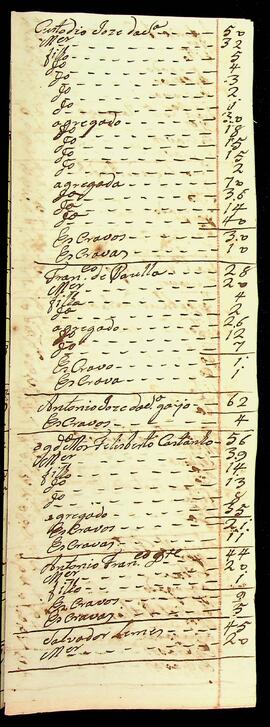 Custodio Joze da S.ª 50
Mer 32
filo 5
do 4
do 3
do 2
do 1
agregado 30
do 18
do 15
do 15
do 2
agregada 70
do 36
do 14
do 40
EsCravos 30
EsCravas 10
Fran.co de 28
Mer 20
filla 4
do 2
agregado 26
do 12
do 7
EsCravo 1
EsCrava 1
Antonio Joze da S.ª 62
EsCravos 4
Felisberto Caetano 56
Mer 39
fillo 14
do 13
do 8
agregado 35
EsCravos 21
EsCravas 11
Antonio Fran.co 44
Mer 20
fillo 1
EsCravos 9
EsCravas 5
Salvador Lemes 45
Mer 20